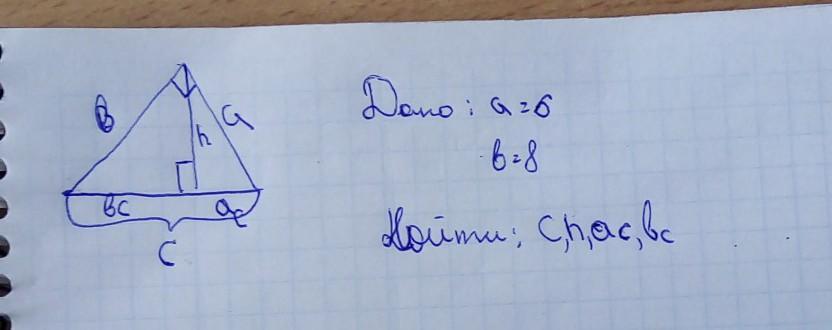 в a
h
вс ac
c
Дано: a=6
в=8
Найти: c, h, ac, вс